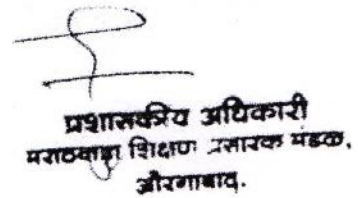 प्रशासकीय अधिकारी
मराठवाडा शिक्षण प्रसारक मंडळ,
औरंगाबाद.